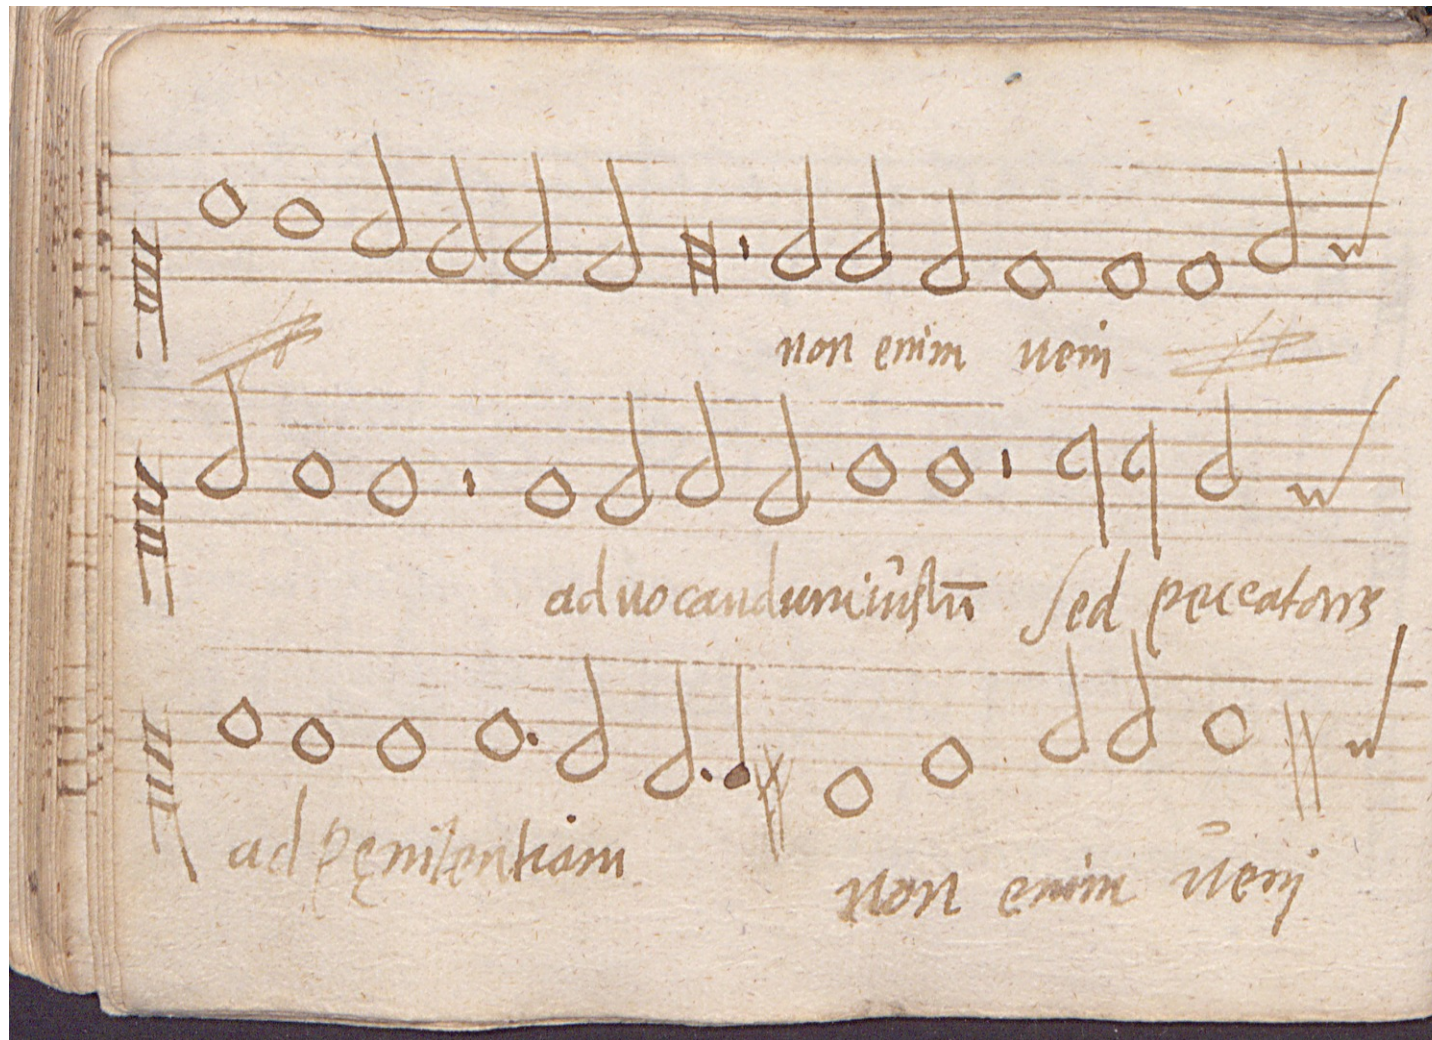 non enim ueni
ad uocandum iũstũ sed peccatores
ad pęnitentiam
non enim ueni